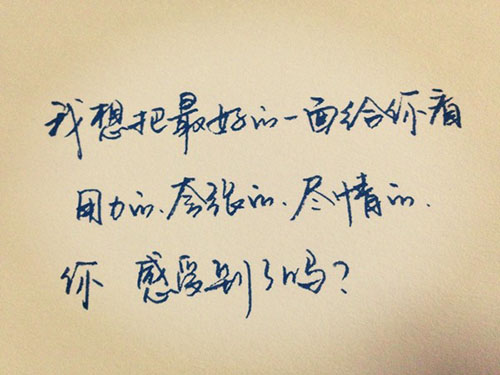 我想把最好的一面给你看
用力的、夸张的、尽情的、
你 感受到了吗?